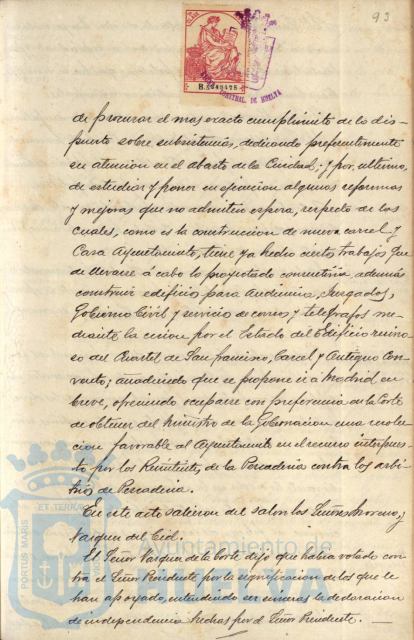 93
B.
CENTRAL DE HUELVA
de procurar el mas exacto cumplimiento de lo dis-
puesto sobre subsistencias, dedicando preferentemente
su atencion en el abasto de la Ciudad; y por último,
de estudiar y poner en ejecucion algunas reformas
y mejoras que no admiten espera, respecto de las
cuales, como es la construccion de nueva carcel y
Casa Ayuntamiento, tiene ya hecho ciertos trabajos que
de llevarse á cabo lo proyectado consentiria, además
construir edificio para Audiencia, Juzgados,
Gobierno Civil y servicio de correos y telégrafos me-
diante la cesion por el Estado del Edificio ruino-
so del Cuartel de San Francisco, Carcel y Antiguo Con-
vento; anadiendo que se propone ir á Madrid en
breve, ofreciendo ocuparse con preferencia en la Corte
de obtener del Ministro de la Gobernacion una resolu-
cion favorable al Ayuntamiento en el recurso interpues-
to por los Remitentes de la Pescaderia contra los arbi-
trios de Pescaderia.
En este acto salieron del salon los Señores Moreno y
Vazquez del Cid.
El Señor Vazquez de la Corte dijo que habia votado con-
tra el Señor Presidente por la significacion de los que le
han apoyado, entendiendo ser sinceras la declaracion
de independencia hechas por el Señor Presidente.
PORTUS MARIS
ET TERRAE
Ayuntamiento de
HUELVA